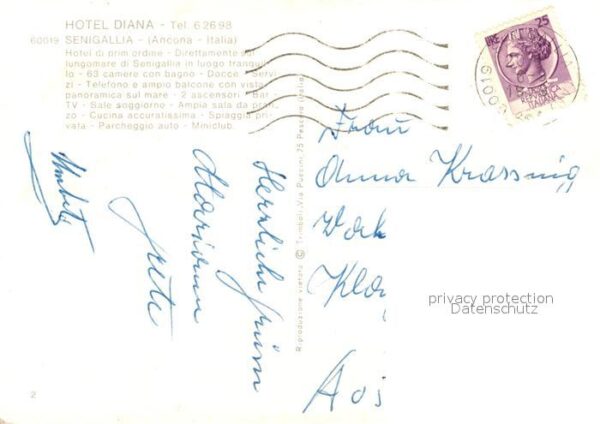 HOTEL DIANA - Tel. 62698
60019 SENIGALLIA - (Ancona - Italia)
Hotel di prim'ordine - Direttamente sul
lungomare di Senigallia in luogo tranquil-
lo - 63 camere con bagno - Docce - Servi
zi - Telefono e ampio balcone con vista
panoramica sul mare - 2 ascensori - Bar -
TV - Sale soggiorno - Ampia sala da pran-
zo - Cucina accuratissima - Spiaggia pri-
vata - Parcheggio auto - Miniclub.
Herzliche Grüße
Marianne
Grete
Umberto
Riproduzione vietata © Trimboli, Via Puccini, 75 Pescara (Italia)
LIRE 25
Frau
Anna Krassnig
privacy protection
Datenschutz
2